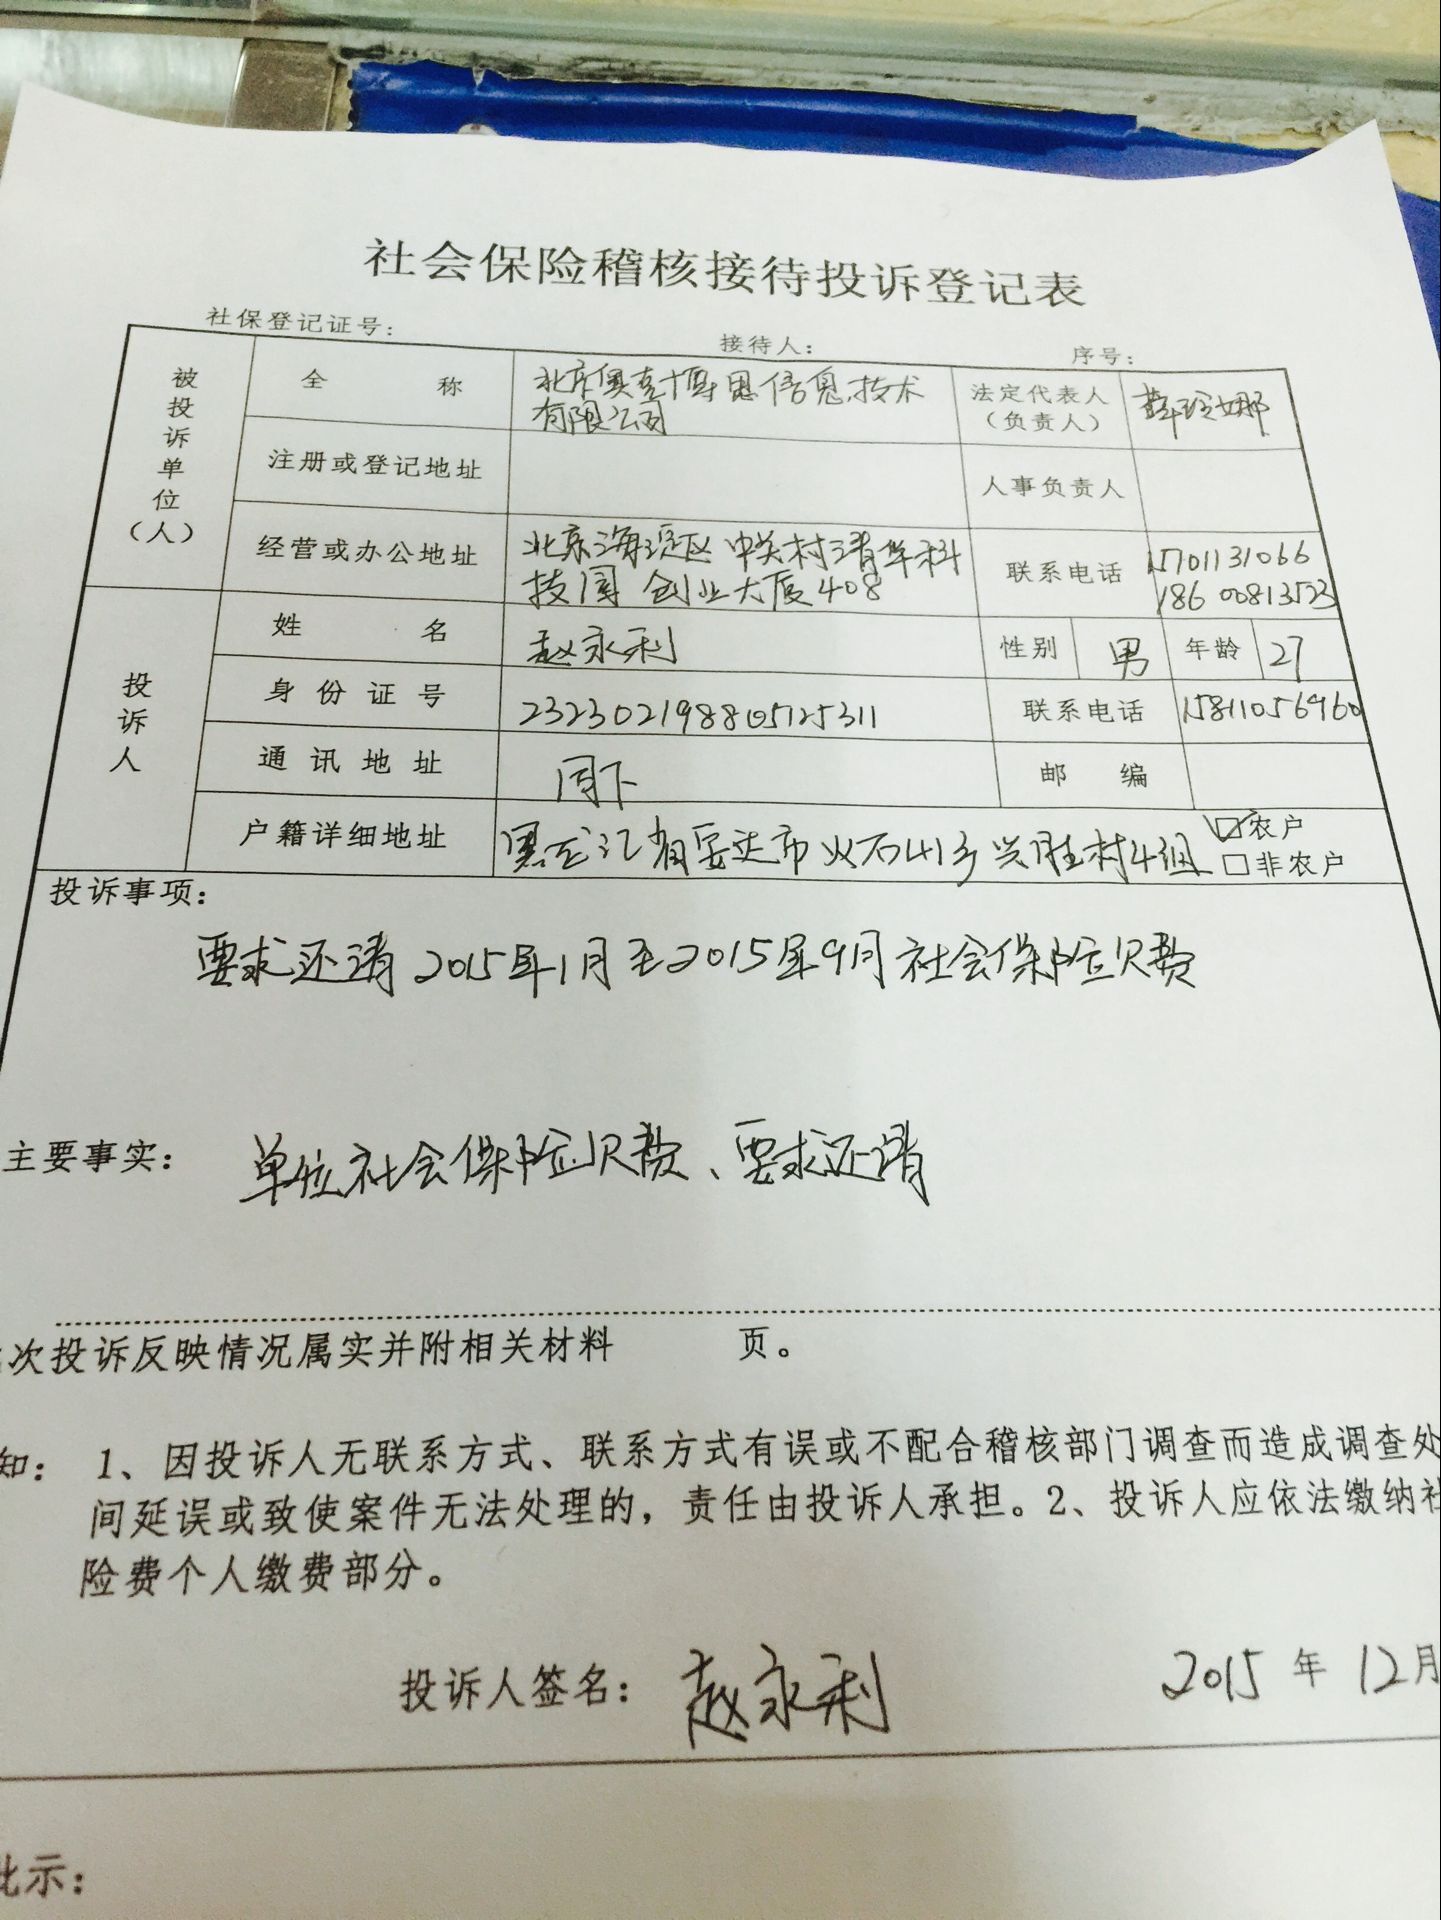 社会保险稽核接待投诉登记表
社保登记证号： 接待人： 序号：
被投诉单位（人）
全称 北京奥克博思信息技术有限公司 法定代表人（负责人）
注册或登记地址 人事负责人
经营或办公地址 北京海淀区中关村清华科技园 创业大厦408 联系电话 15701131066 18600813523
投诉人
姓名 赵永利 性别 男 年龄 27
身份证号 232302198805125311 联系电话 15811056960
通讯地址 同下 邮编
户籍详细地址 黑龙江省安达市火石山乡兴胜村4组 ☑农户 □非农户
投诉事项：
要求还清2015年1月至2015年9月社会保险欠费
主要事实： 单位社会保险欠费、要求还清
次投诉反映情况属实并附相关材料 页。
知： 1、因投诉人无联系方式、联系方式有误或不配合稽核部门调查而造成调查处
间延误或致使案件无法处理的，责任由投诉人承担。2、投诉人应依法缴纳社
险费个人缴费部分。
投诉人签名： 赵永利 2015年12月
批示：